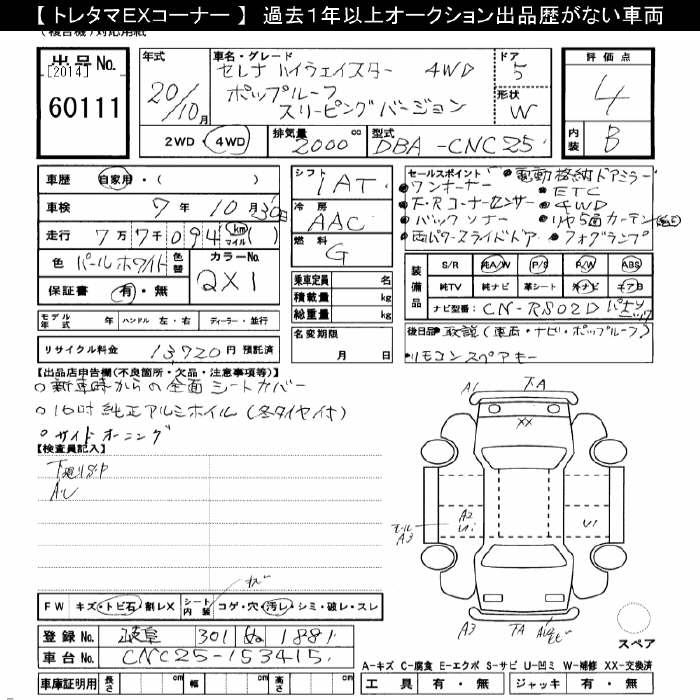 【 トレタマEXコーナー 】 過去1年以上オークション出品歴がない車両
(複合機)対応用紙
出品No.
[2014]
60111
年式
20/10月
車名・グレード
セレナ ハイウェイスター 4WD
ポップルーフ
スリーピングバージョン
ドア
5
形状
W
評価点
4
内装
B
2WD・4WD
排気量
2000 cc
型式
DBA-CNC25
車歴
自家用・( )
車検
7年 10月 30日
走行
7万7千094 km マイル ( )
色
パールホワイト
色替
カラーNo.
QX1
保証書
有・無
シフト
1AT
冷房
AAC
燃料
G
乗車定員 名
積載量 kg
総重量 kg
セールスポイント
電動格納ドアミラー
ワンオーナー
ETC
F・Rコーナーセンサー
4WD
バックソナー
リヤ5面カーテン
両パワースライドドア
フォグランプ
装備品
S/R 純A/W P/S P/W ABS
純TV 純ナビ 革シート 外ナビ エアB
ナビ型番( CN-RS02D パナソニック
モデル年式 年
ハンドル 左・右
ディーラー・並行
名変期限
月 日
後日品 取説(車両・ナビ・ポップルーフ)
リモコンスペアキー
リサイクル料金 13,720円 預託済
【出品店申告欄(不良箇所・欠品・注意事項等)】
○新車時からの全面シートカバー
○16吋純正アルミホイル(冬タイヤ付)
○サイドオーニング
【検査員記入】
下廻りSP
AU
A1
下A
XX
A2
Ui
モール
A3
Ui
A3
TA
FW
キズ・トビ石・割レX
シート内装
コゲ・穴・汚レ・シミ・破レ・スレ
登録No.
岐阜 301 ぬ 1881
車台No.
CNC25-153415
スペア
A-キズ C-腐食 E-エクボ S-サビ U-凹ミ W-補修 XX-交換済
車庫証明用
長さ cm 幅 cm 高さ cm
工具 有・無 ジャッキ 有・無